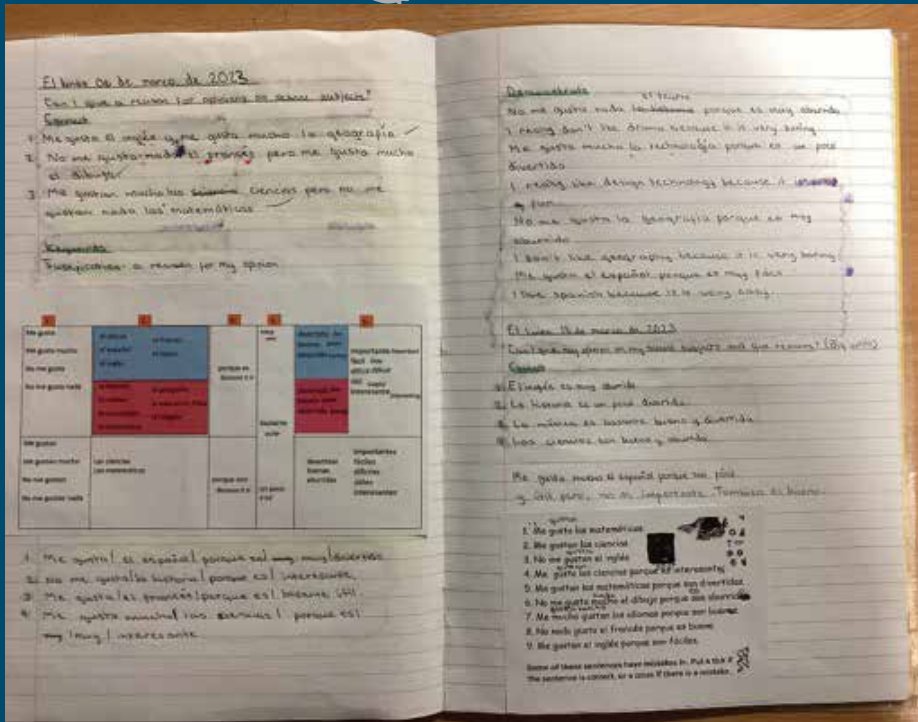 El lunes 06 de marzo de 2023
Can I give a reason for opinions on school subjects?
Connect
1. Me gusta el inglés y me gusta mucho la geografía
2. No me gusta nada el francés pero me gusta mucho
el dibujo
3. Me gustan mucho las ciencias pero no me
gustan nada las matemáticas
Keywords
Justification - a reason for my opinion
Me gusta
Me gusta mucho
No me gusta
No me gusta nada
porque es
Me gustan
Me gustan mucho
No me gustan
No me gustan nada
Las ciencias
Las matemáticas
porque son
bastante
un poco
divertidas
buenas
aburridas
importantes
fáciles
difíciles
útiles
interesantes
1. Me gusta / el español / porque es / muy / divertido
2. No me gusta / la historia / porque es / interesante
3. Me gusta / el francés / porque es / bastante útil.
4. Me gusta mucho / las ciencias / porque es /
muy / interesante
Demonstrate
No me gusta nada el teatro porque es muy aburrido
I really don't like drama because it is very boring
Me gusta mucha la technología porque es un poco
divertido
I really like design technology because it
fun
No me gusta la geografía porque es muy
aburrido
I don't like geography because it is very boring
Me gusta el español porque es muy fácil
I like spanish because it is very easy.
El lunes 13 de marzo de 2023
Can I give my opinion on my school subjects and give reasons? (Big write)
Connect
1. El inglés es muy aburrido
2. La historia es un poco divertida
3. La música es bastante bueno y divertida
4. Las ciencias son bueno y aburrido
Me gusta mucho el español porque es fácil
y útil pero, no es importante. Tambien es bueno.
1. Me gusta las matemáticas.
2. Me gustan las ciencias.
3. No me gustan el inglés
4. Me gusta las ciencias porque es interesante
5. Me gustan las matemáticas porque son divertidas
6. No me gusta mucho el dibujo porque son aburrido
7. Me mucho gustan los idiomas porque son
8. No nada gusta el francés porque es bueno
9. Me gustan el inglés porque son fáciles.
Some of these sentences have mistakes in. Put a tick if
the sentence is correct, or a cross if there is a mistake.